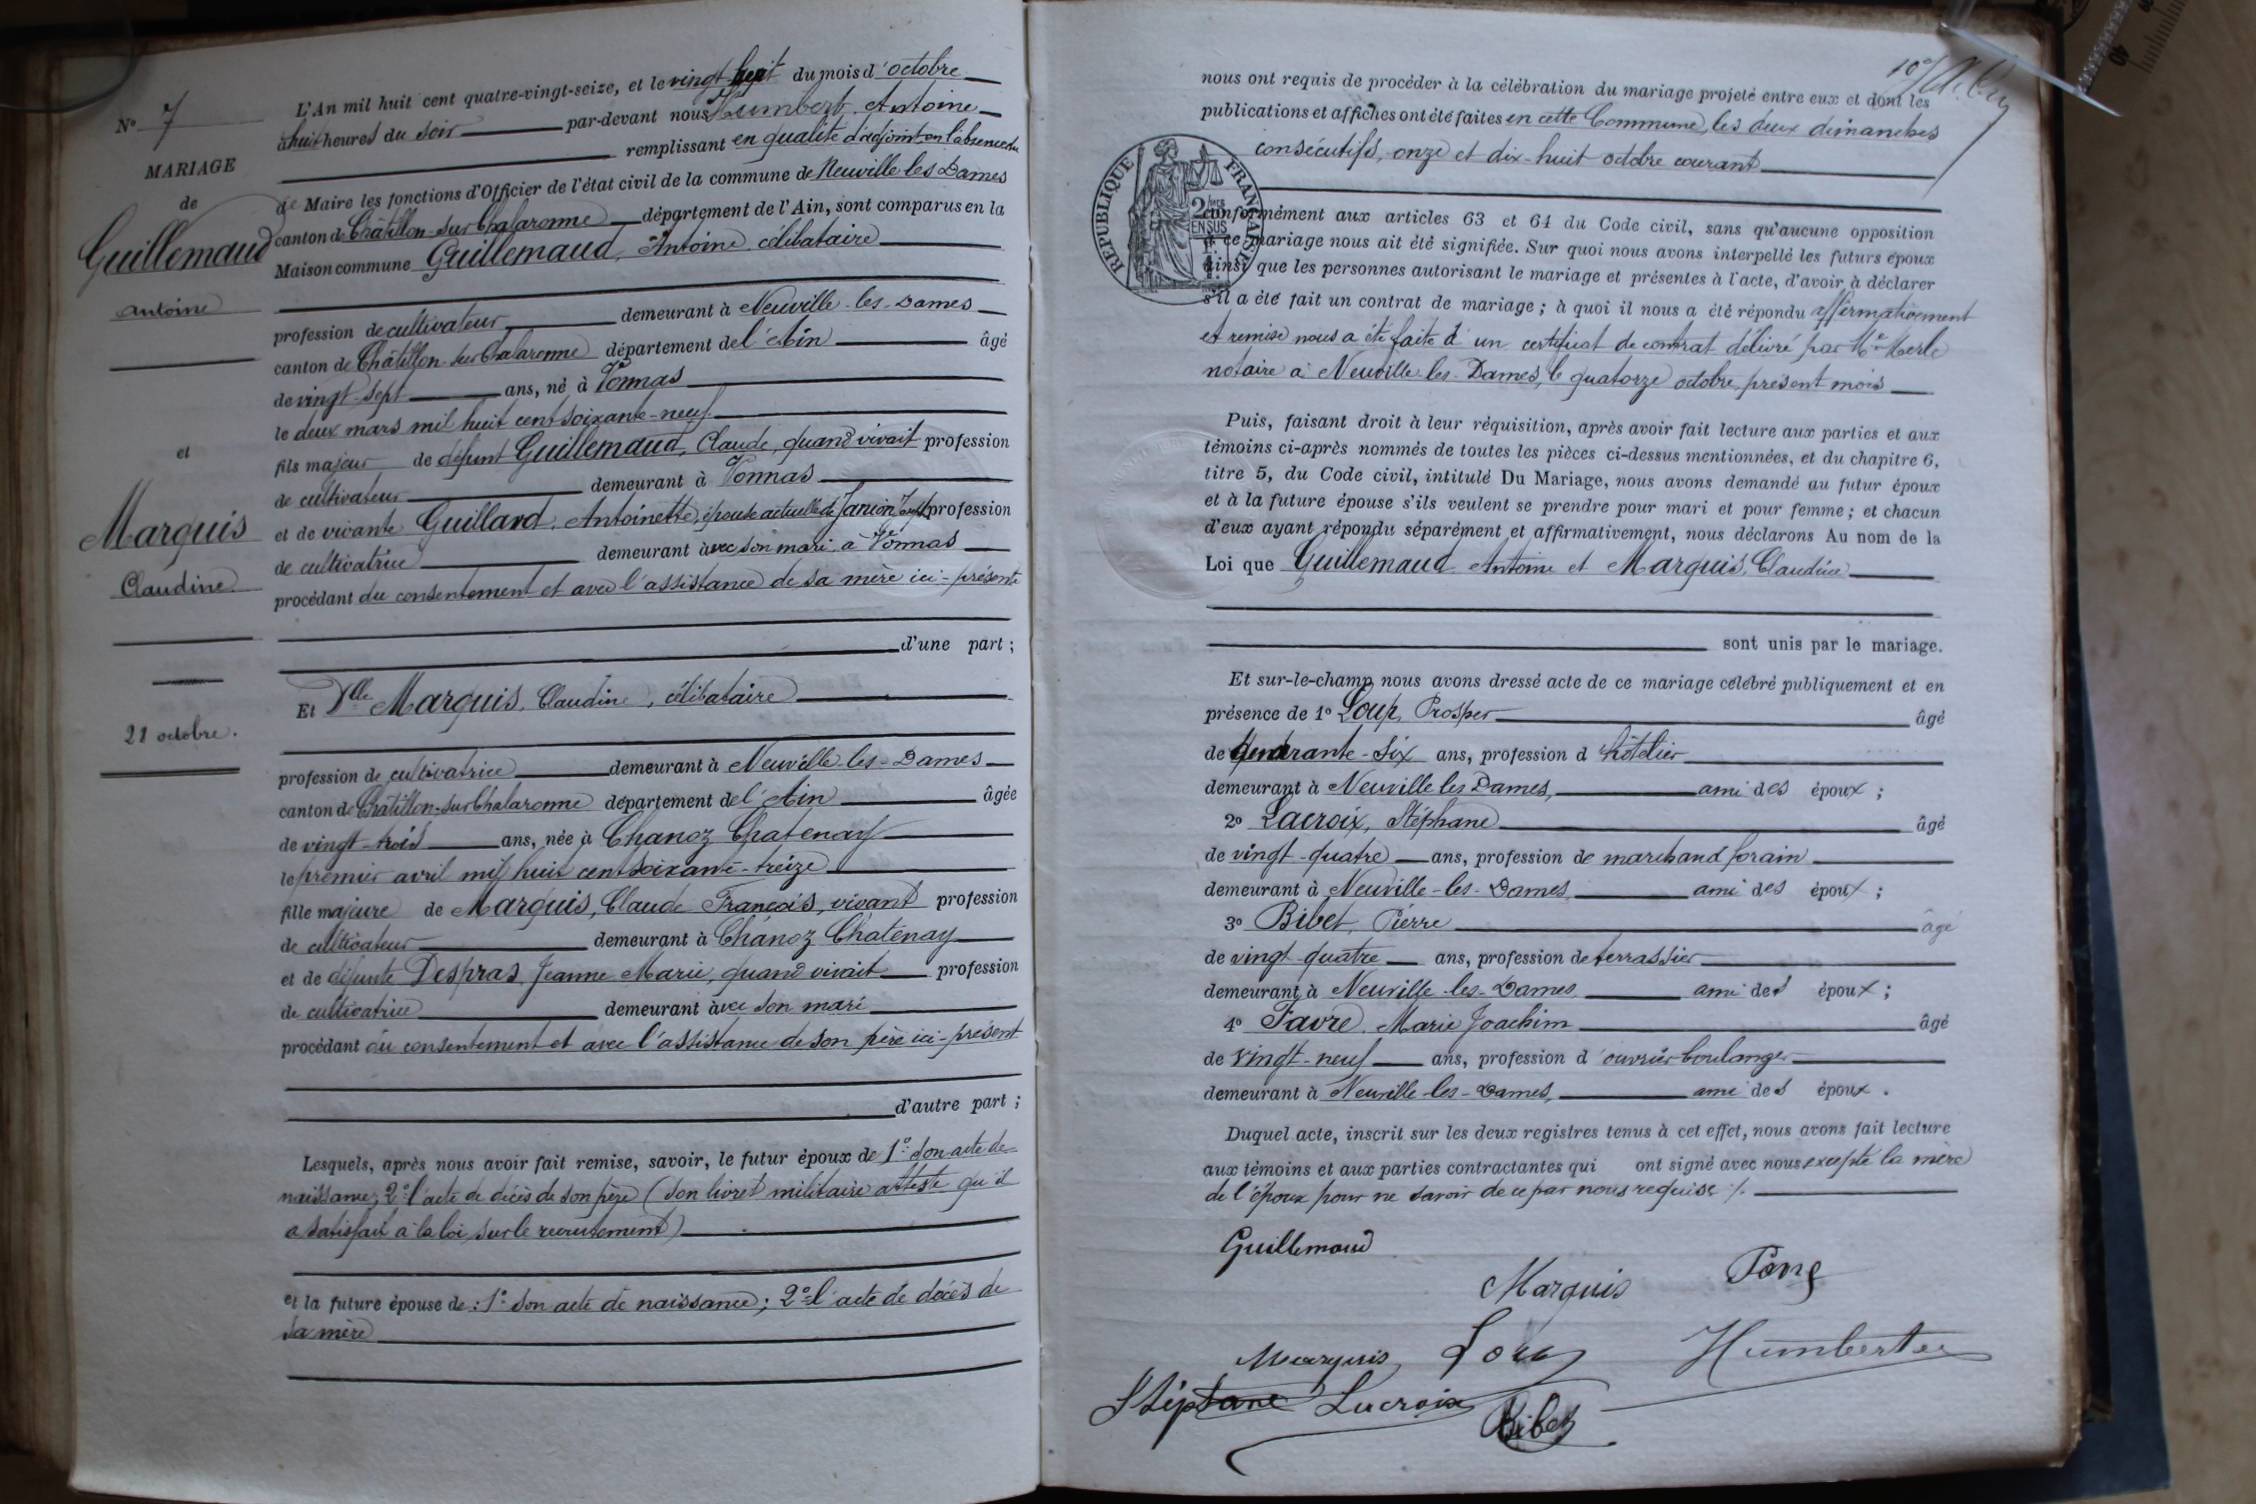 No 7
MARIAGE
de
Guillemaud
Antoine
et
Marquis
Claudine
21 octobre.
L'An mil huit cent quatre-vingt-seize, et le vingt du mois d'octobre
à huit heures du soir par-devant nous Humbert, Antoine
remplissant en qualité d'adjoint en l'absence du
de Maire les fonctions d'Officier de l'état civil de la commune de Neuville les Dames
canton de Châtillon-sur-Chalaronne département de l'Ain, sont comparus en la
Maison commune Guillemaud, Antoine célibataire
profession de cultivateur demeurant à Neuville-les-Dames
canton de Châtillon-sur-Chalaronne département de l'Ain âgé
de vingt-sept ans, né à Vonnas
le deux mars mil huit cent soixante-neuf
fils majeur de défunt Guillemaud, Claude, quand vivait profession
de cultivateur demeurant à Vonnas
et de vivante Guillard, Antoinette, épouse actuelle de Janion profession
de cultivatrice demeurant avec son mari à Vonnas
procédant du consentement et avec l'assistance de sa mère ici-présente
d'une part ;
Et Dlle Marquis, Claudine, célibataire
profession de cultivatrice demeurant à Neuville-les-Dames
canton de Châtillon-sur-Chalaronne département de l'Ain âgée
de vingt-trois ans, née à Chanoz Chatenay
le premier avril mil huit cent soixante-treize
fille majeure de Marquis, Claude François, vivant profession
de cultivateur demeurant à Chanoz Chatenay
et de défunte Despras, Jeanne Marie, quand vivait profession
de cultivatrice demeurant avec son mari
procédant du consentement et avec l'assistance de son père ici-présent
d'autre part ;
Lesquels, après nous avoir fait remise, savoir, le futur époux de 1° son acte de
naissance; 2° l'acte de décès de son père (son livret militaire atteste qu'il
a satisfait à la loi sur le recrutement)
et la future épouse de : 1° son acte de naissance; 2° l'acte de décès de
sa mère
nous ont requis de procéder à la célébration du mariage projeté entre eux et dont les
publications et affiches ont été faites en cette Commune, les deux dimanches
consécutifs, onze et dix-huit octobre courant
RÉPUBLIQUE FRANÇAISE
conformément aux articles 63 et 64 du Code civil, sans qu'aucune opposition
à ce mariage nous ait été signifiée. Sur quoi nous avons interpellé les futurs époux
ainsi que les personnes autorisant le mariage et présentes à l'acte, d'avoir à déclarer
s'il a été fait un contrat de mariage ; à quoi il nous a été répondu affirmativement
et remise nous a été faite d'un certificat de contrat délivré par Me Merle
notaire à Neuville-les-Dames, le quatorze octobre, présent mois
Puis, faisant droit à leur réquisition, après avoir fait lecture aux parties et aux
témoins ci-après nommés de toutes les pièces ci-dessus mentionnées, et du chapitre 6,
titre 5, du Code civil, intitulé Du Mariage, nous avons demandé au futur époux
et à la future épouse s'ils veulent se prendre pour mari et pour femme ; et chacun
d'eux ayant répondu séparément et affirmativement, nous déclarons Au nom de la
Loi que Guillemaud Antoine et Marquis, Claudine
sont unis par le mariage.
Et sur-le-champ nous avons dressé acte de ce mariage célébré publiquement et en
présence de 1° Loup, Prosper âgé
de quarante-six ans, profession d'hôtelier
demeurant à Neuville les Dames, ami des époux ;
2° Lacroix, Stéphane âgé
de vingt-quatre ans, profession de marchand forain
demeurant à Neuville-les-Dames ami des époux ;
3° Bibet, Pierre âgé
de vingt-quatre ans, profession de terrassier
demeurant à Neuville-les-Dames ami des époux ;
4° Favre, Marie Joachim âgé
de vingt-neuf ans, profession d'ouvrier boulanger
demeurant à Neuville-les-Dames, ami des époux.
Duquel acte, inscrit sur les deux registres tenus à cet effet, nous avons fait lecture
aux témoins et aux parties contractantes qui ont signé avec nous excepté la mère
de l'époux pour ne savoir de ce par nous requise ./.
Guillemaud
Marquis
Marquis
Humbert
Stéphane Lacroix
Bibet